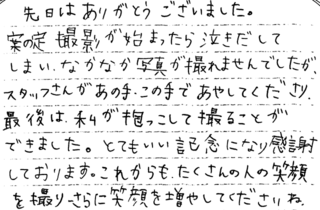 先日はありがとうございました。
案の定 撮影が始まったら泣きだして
しまい、なかなか写真が撮れませんでしたが、
スタッフさんがあの手、この手であやしてくださり、
最後は、私が抱っこして撮ることが
できました。とてもいい記念になり感謝
しております。これからも、たくさんの人の笑顔
を撮りさらに笑顔を増やしてくださいね